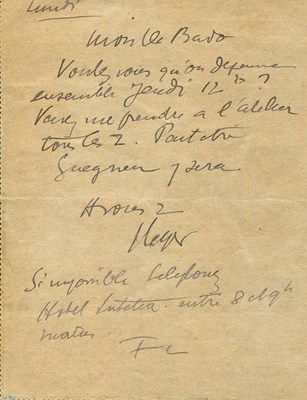 Lundi
Mon
Voulez vous qu'on dejeune
ensemble Jeudi 12 ?
Venez me prendre a l'atelier
tous les 2. Peut etre
y sera
a vous 2
FLeger
Si impossible telefonez
Hotel Lutetia. entre 8 et 9h
matin
FL